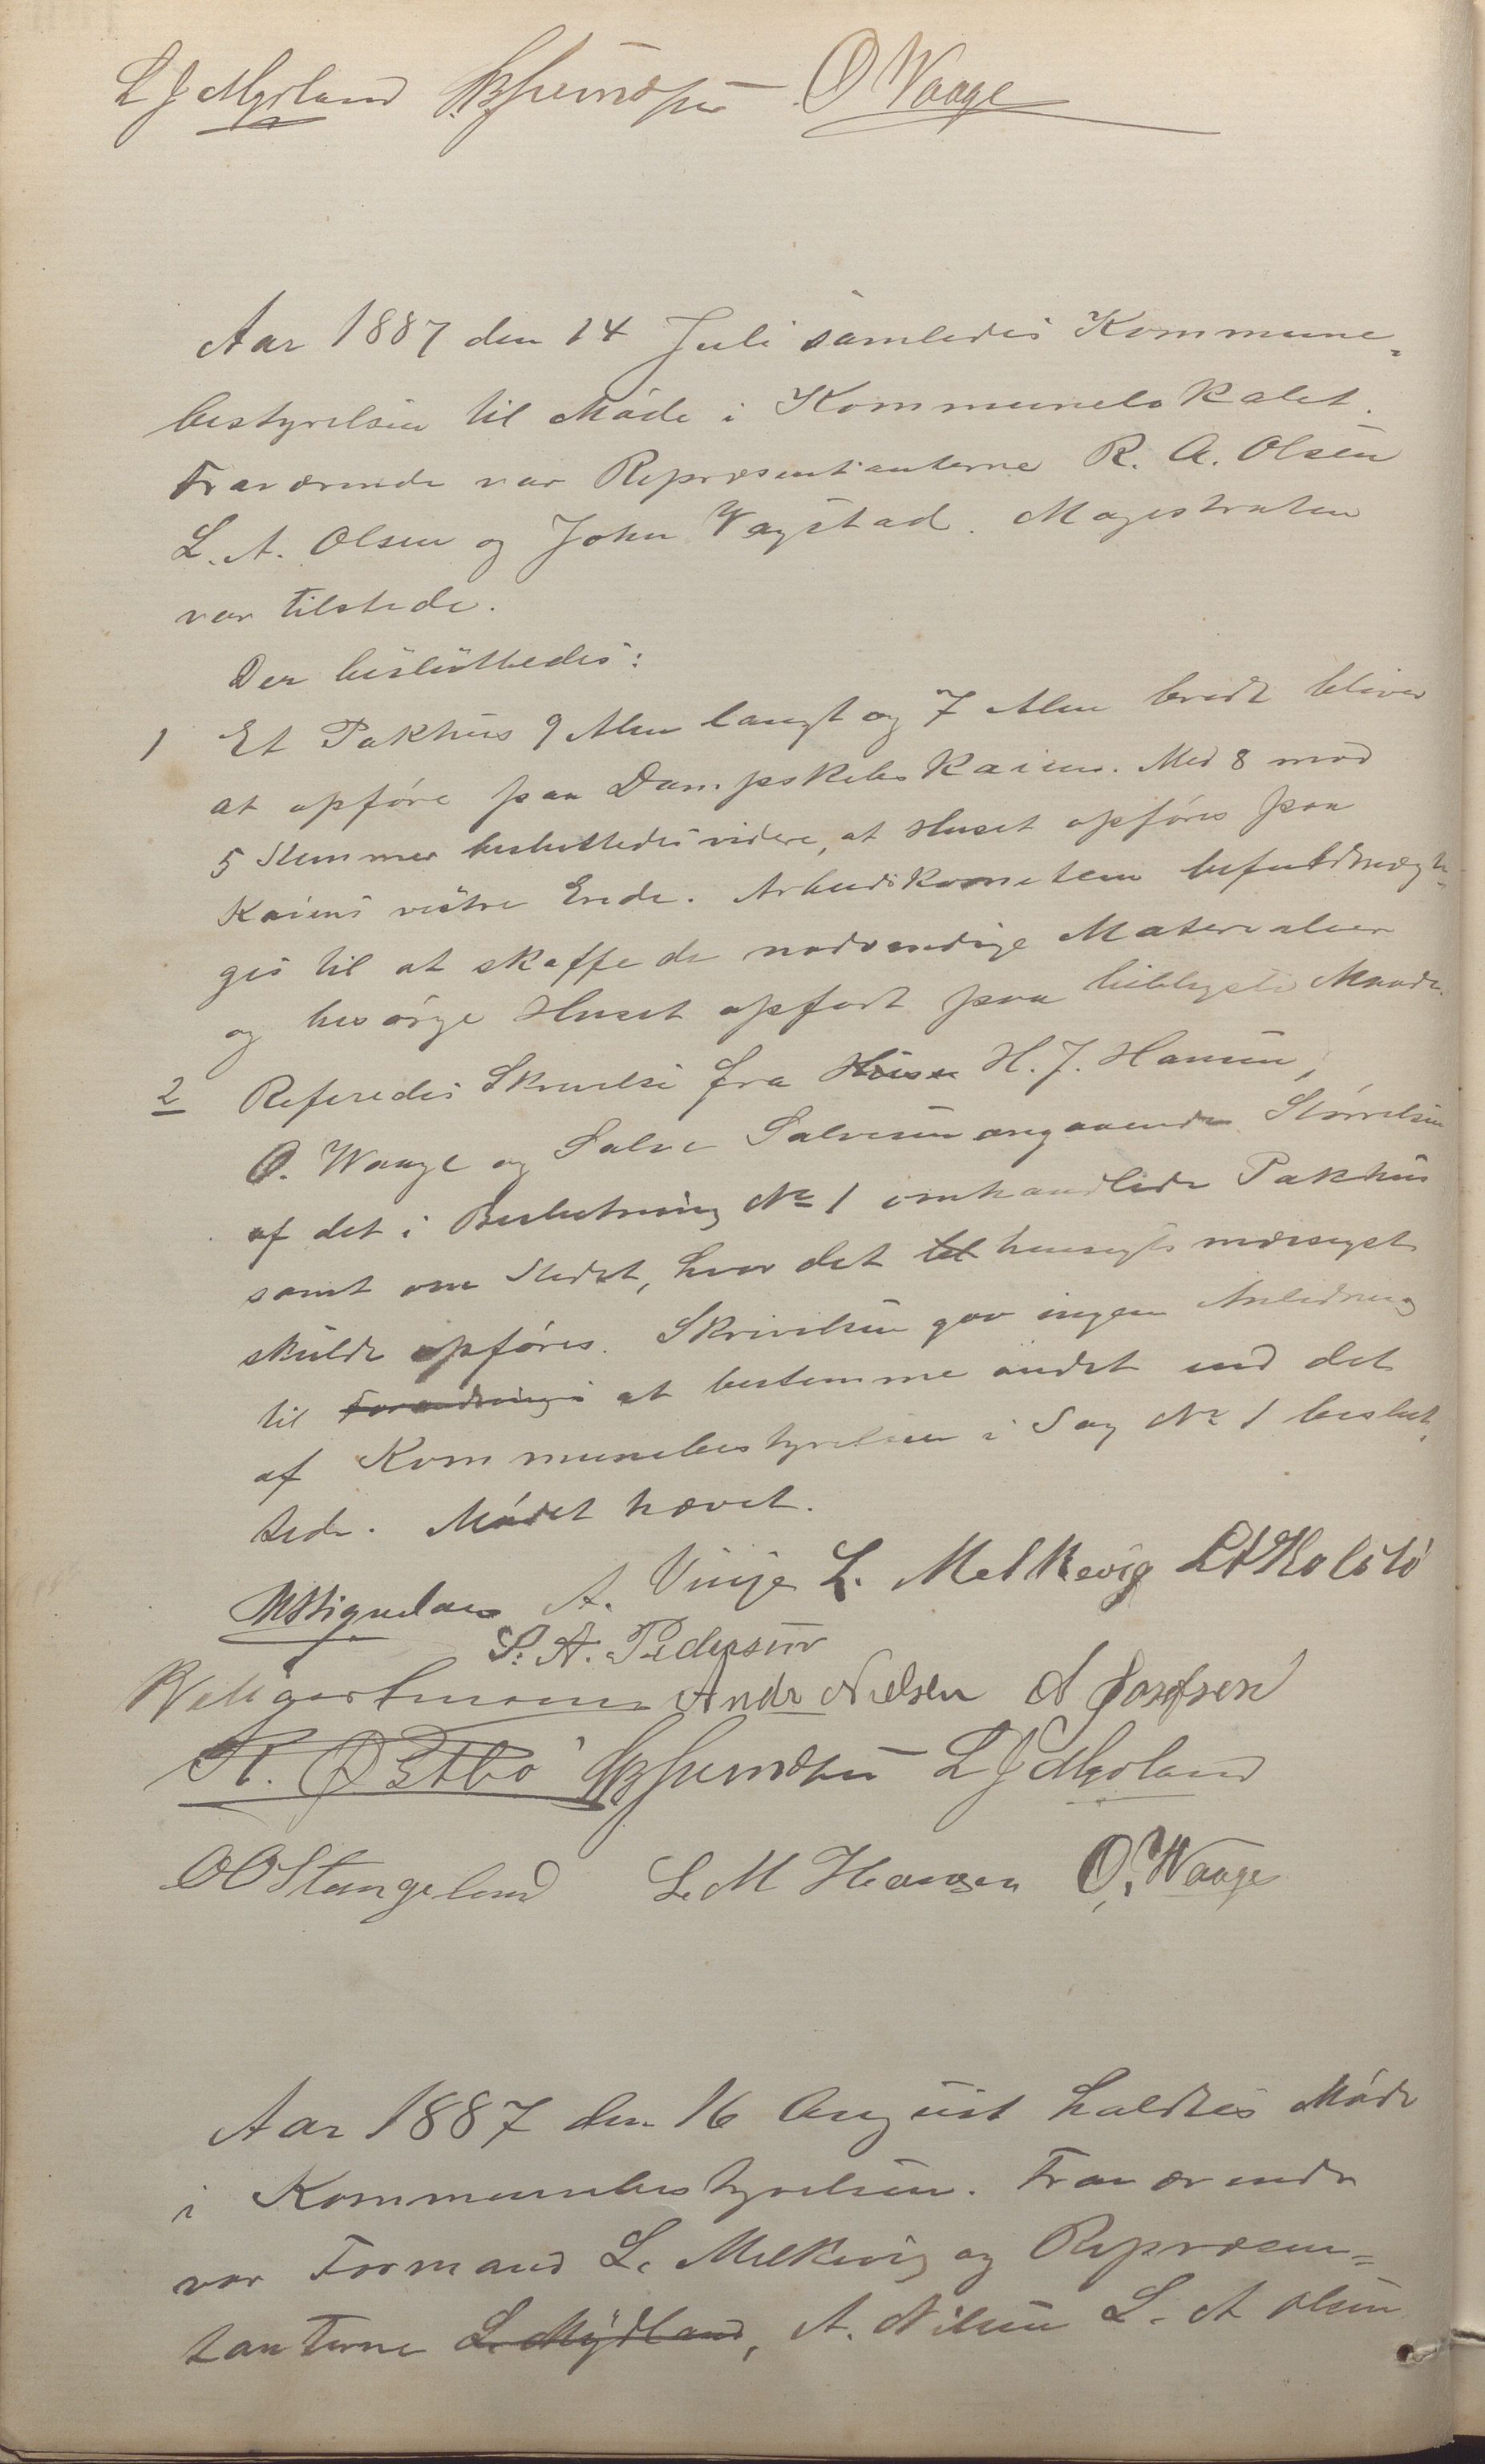 L J Mydland O Waage
Aar 1887 den 14 Juli samledes Kommune-
bestyrelsen til Møde i Kommunelokalet.
Fraværende var Repræsentanterne R. A. Olsen
L. A. Olsen og John Vagstad. Magistraten
var tilstede.
Der besluttedes:
1 Et Pakhus 9 Alen langt og 7 Alen bredt bliver
at opføre paa Dampskibskaien. Med 8 mod
5 Stemmer besluttedes videre, at Huset opføres paa
Kaiens vestre Ende. Arbeidskomiteen befuldmægti-
ges til at skaffe de nødvendige Materialier
og besørge Huset opført paa billigste Maade.
2 Referedes Skrivelse fra H. J. Hansen,
O. Waage og Salve Salvesen angaaende Størrelsen
af det i Beslutning No 1 omhandlede Pakhus
samt om Stedet, hvor det hensigtsmæssigst
skulde opføres. Skrivelsen gav ingen Anledning
til Forandring i at bestemme andet end det
af Kommunebestyrelsen i Sag No 1 beslut-
tede. Mødet hævet.
A. Vinje L. Melkevig
S. A. Pedersen
Andr Nielsen A Josefsen
K. Østbø L J Mydland
O O Stangeland L. M Hansen O. Waage
Aar 1887 den 16 August holdtes Møde
i Kommunebestyrelsen. Fraværende
var Formand L. Melkevig og Repræsen-
tanterne L. Mydland, A. Nilsen L. A Olsen